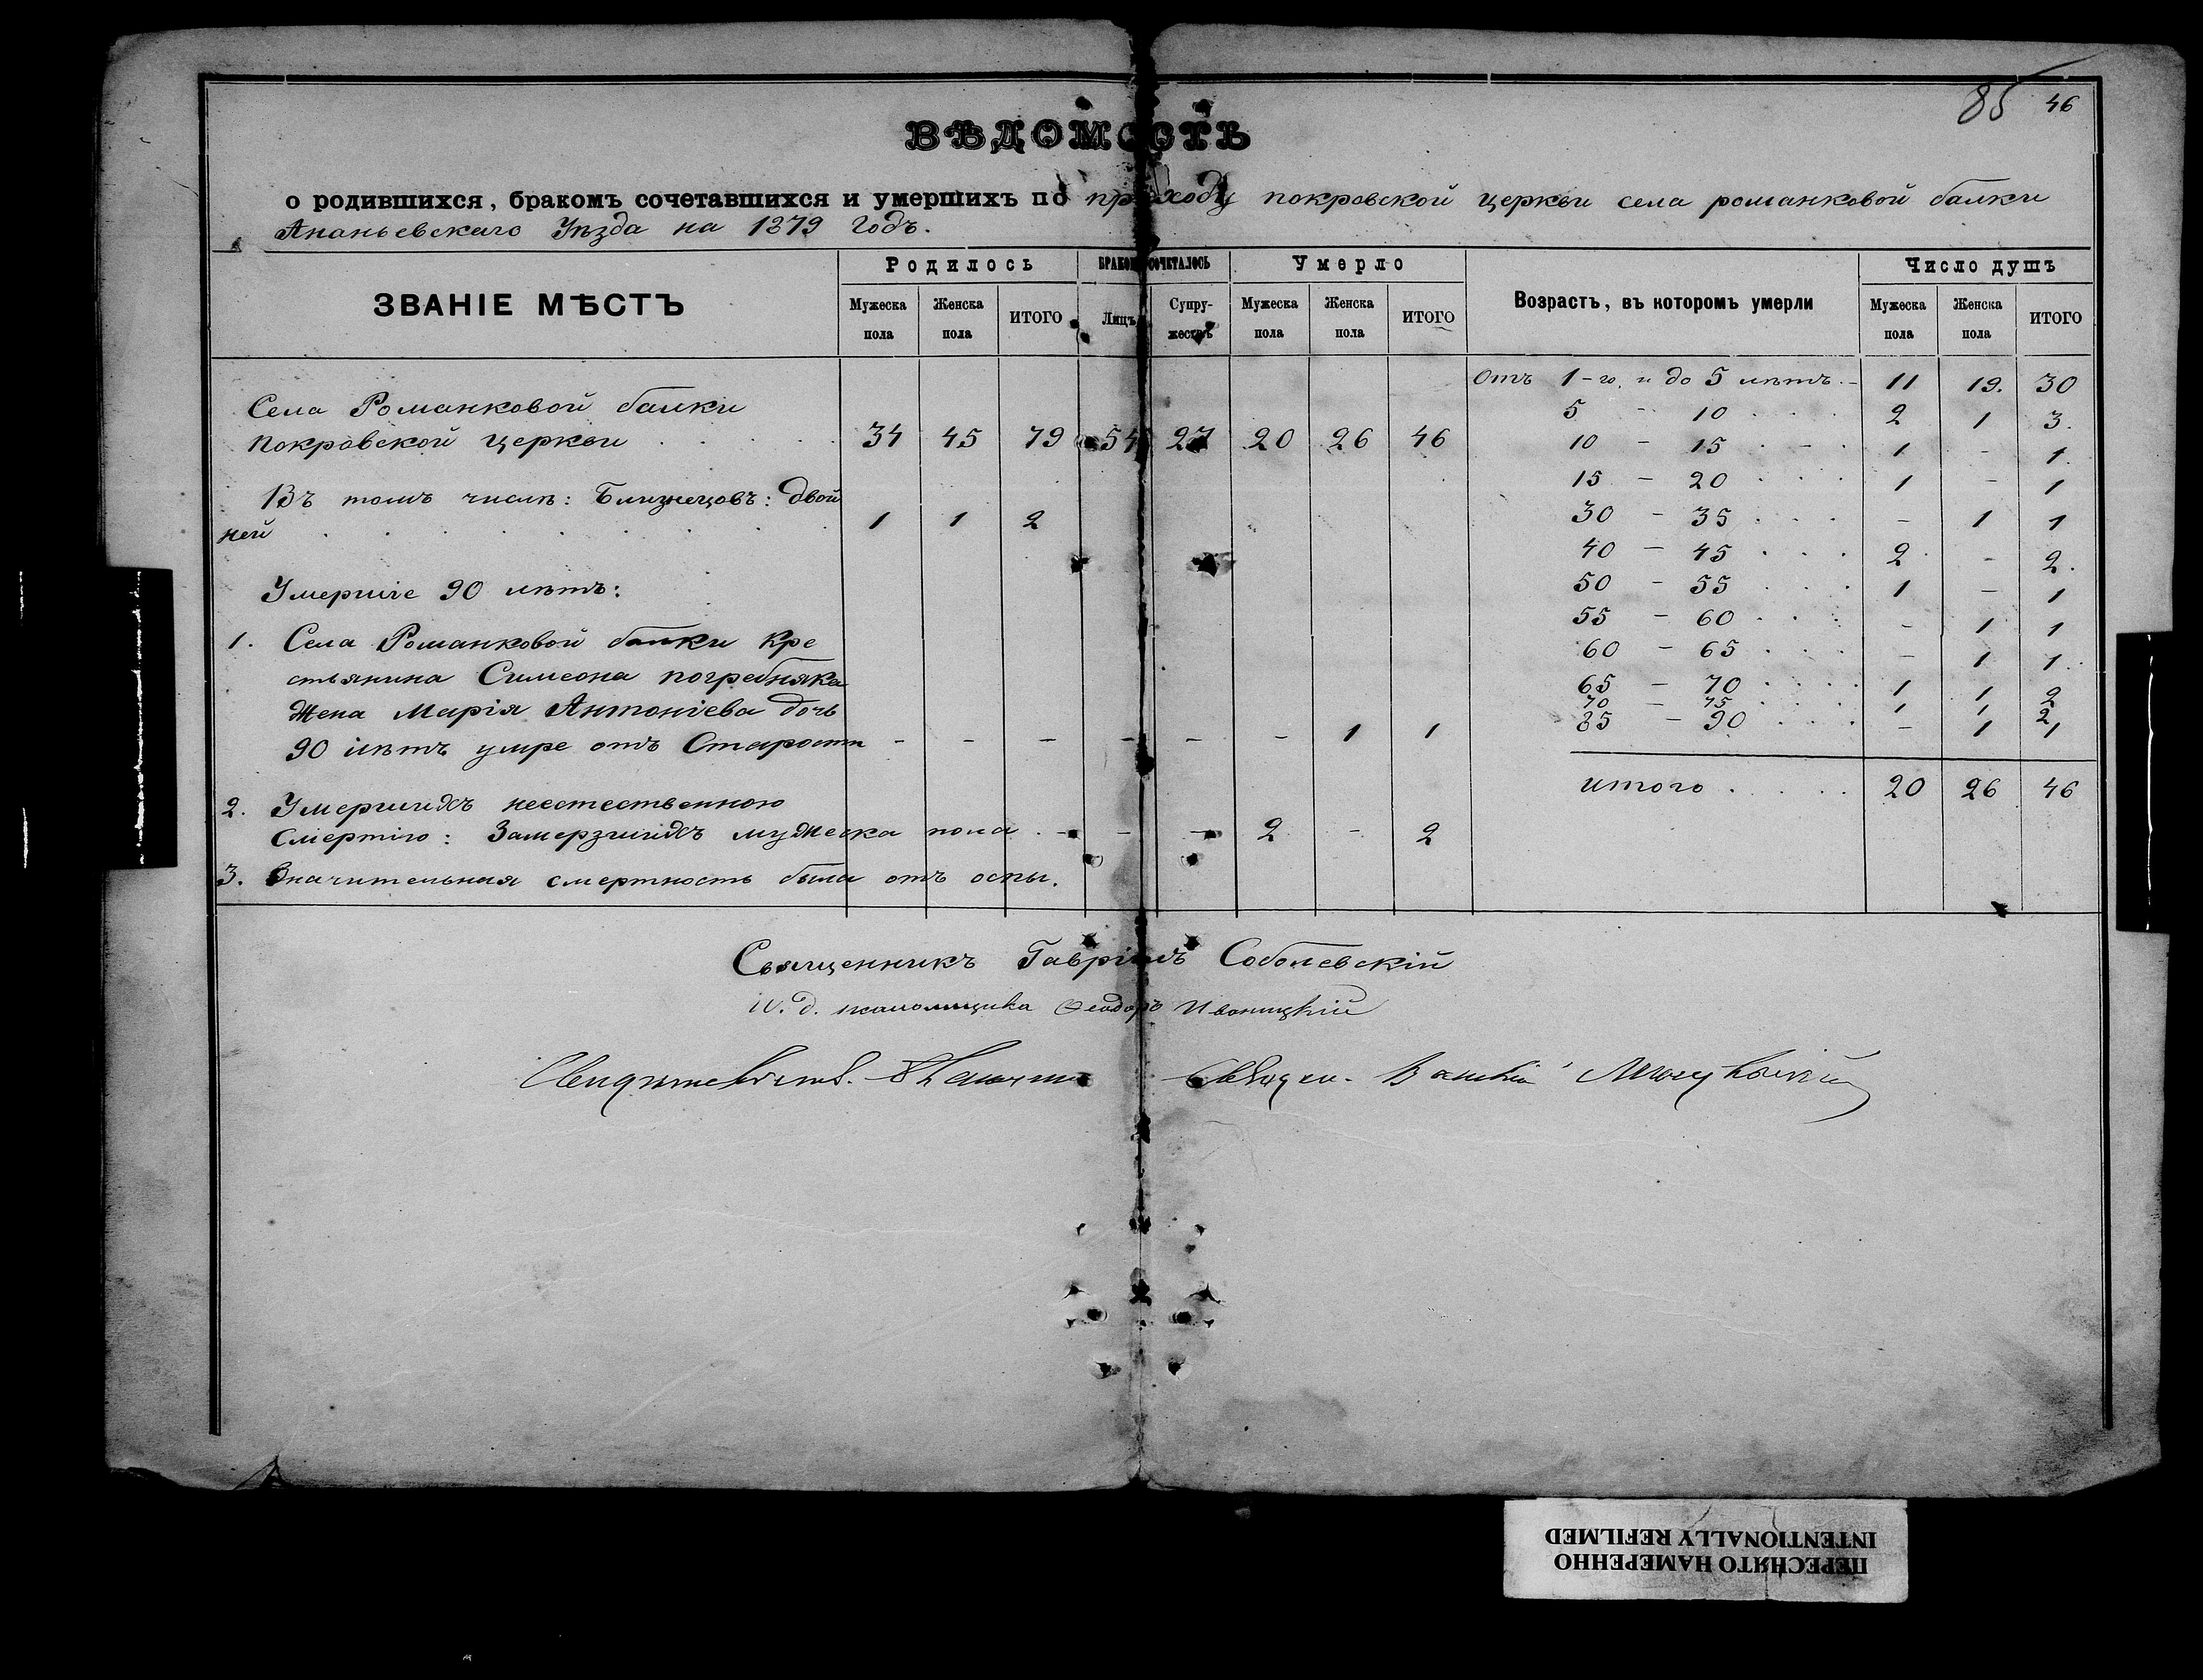 85 46
ВѢДОМОСТЬ
о родившихся, бракомъ сочетавшихся и умершихъ по приходу покровской церкви села романковой балки
Ананьевскаго Уѣзда на 1879 годъ.
ЗВАНІЕ МѢСТЪ
Родилось
БРАКОМЪ СОЧЕТАЛОСЬ
Умерло
Возрастъ, въ которомъ умерли
Число душъ
Мужеска пола
Женска пола
ИТОГО
Лицъ
Супружествъ
Мужеска пола
Женска пола
ИТОГО
Мужеска пола
Женска пола
ИТОГО
Села Романковой балки
покровской церкви . . . . 34 45 79 54 27 20 26 46
Въ томъ числѣ: Близнецовъ: двой
ней . . . . . . . 1 1 2
Умершіе 90 лѣтъ:
1. Села Романковой балки кре
стьянина Симеона погребняка
жена Марія Антоніева дочь
90 лѣтъ умре отъ Старости - - - - - - 1 1
2. Умершихъ неестественною
смертію: Замерзшихъ мужеска пола . - - - 2 - 2
3. Значительная смертность была отъ оспы.
Отъ 1-го и до 5 лѣтъ. - 11 19. 30
5 - 10 . . . 2 1 3.
10 - 15 . - . 1 - 1.
15 - 20 . . . 1 - 1
30 - 35 . . . - 1 1
40 - 45 . . . 2 - 2.
50 - 55 . . . 1 - 1
55 - 60 . . . - 1 1
60 - 65 . . . - 1 1.
65 - 70 . . . . 1 1 2
70 - 75 . . . . 1 1 2
85 - 90 . . . - 1 1
итого . . . . . 20 26 46
Священникъ Гавріилъ Соболевскій
И. д. псаломщика Ѳеодоръ Иваницкій
ПЕРЕСНЯТО НАМЕРЕННО
INTENTIONALLY REFILMED